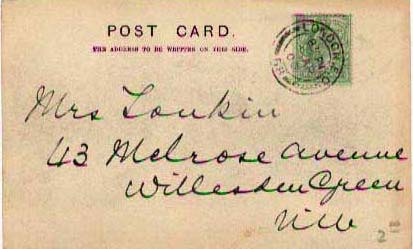 POST CARD.
THE ADDRESS TO BE WRITTEN ON THIS SIDE.
LONDON
Mrs Lonkin
43 Melrose Avenue
Willesden Green
NW